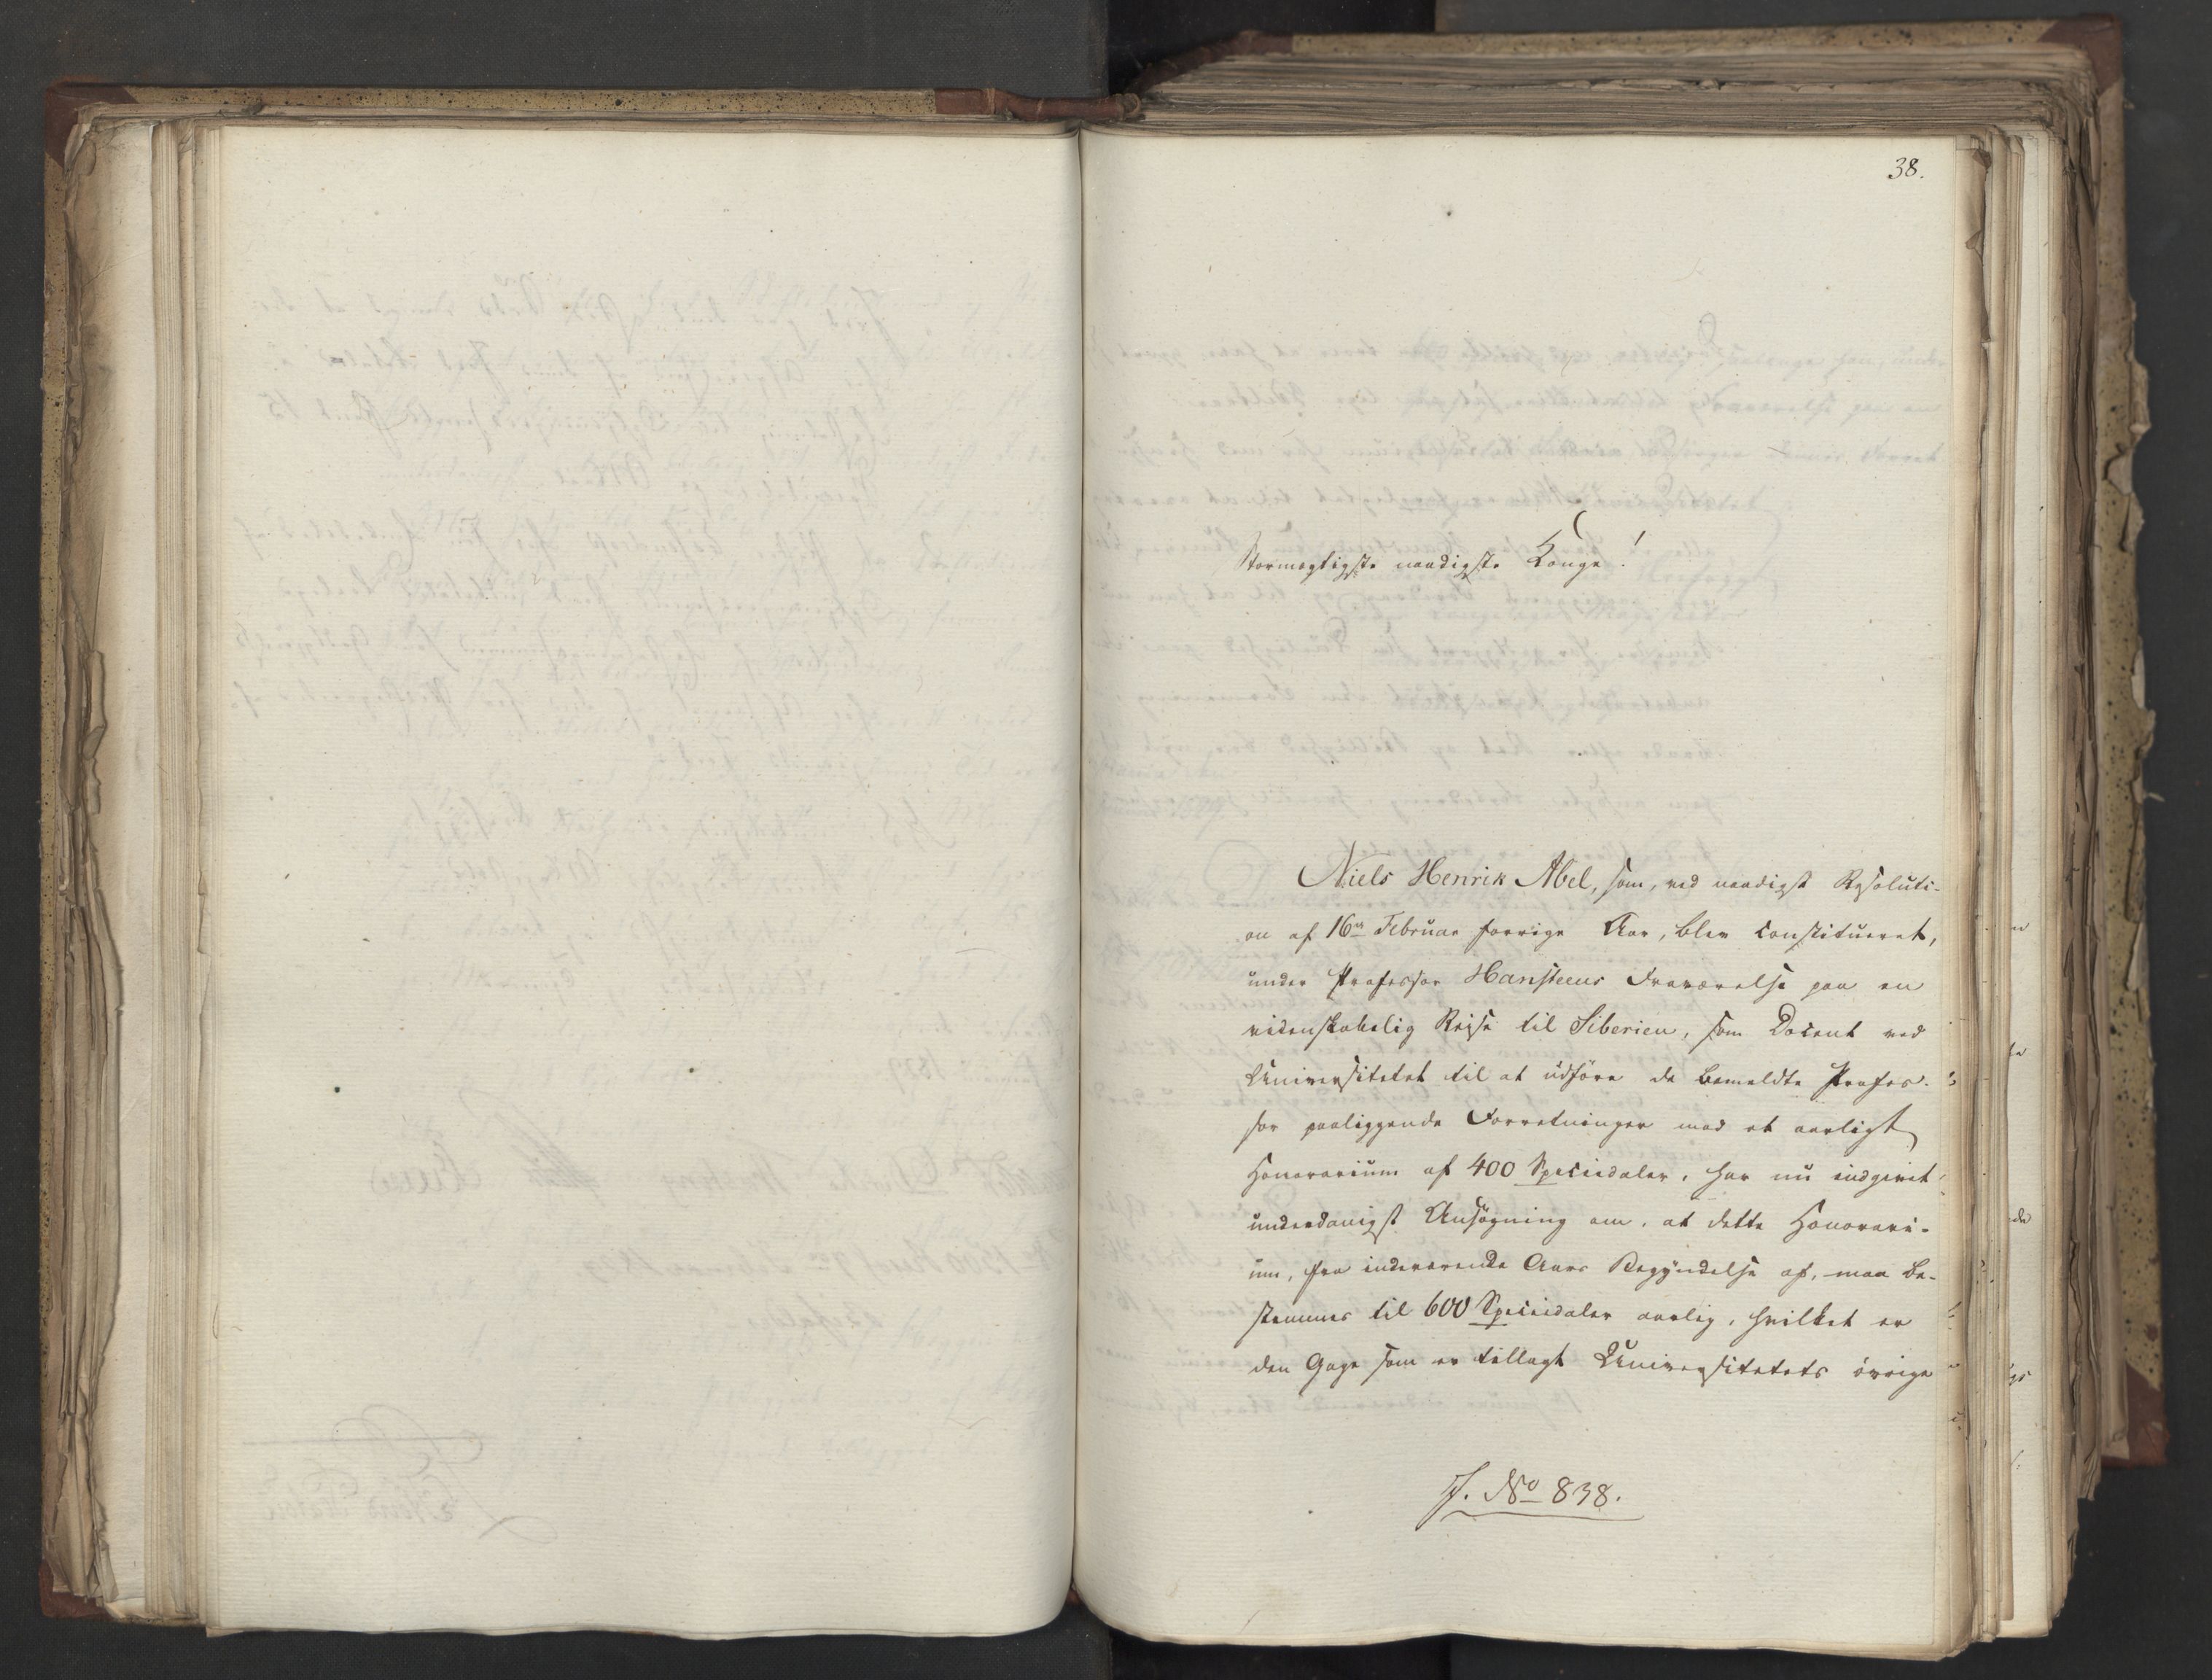 38.
Stormægtigste naadigste Konge!
Niels Henrik Abel, som, ved naadigst Resoluti-
on af 16de Februar forrige Aar, blev constitueret,
under Professor Hansteens Fraværelse paa en
videnskabelig Rejse til Siberien, som Docent ved
Universitetet til at udføre de bemeldte Profes-
sor paaliggende Forretninger mod et aarligt
Honorarium af 400 Speciedaler, har nu indgivet
underdanigst Ansøgning om, at dette Honorari-
um, fra indeværende Aars Begyndelse af, maa be-
stemmes til 600 Speciedaler aarlig, hvilket er
den Gage som er tillagt Universitetets øvrige
J. No 838.